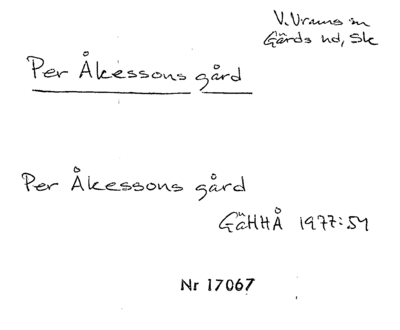 V. Vrams sn
Gärds hd, Sk
Per Åkessons gård
Per Åkessons gård
GäHHÅ 1977:54
Nr 17067